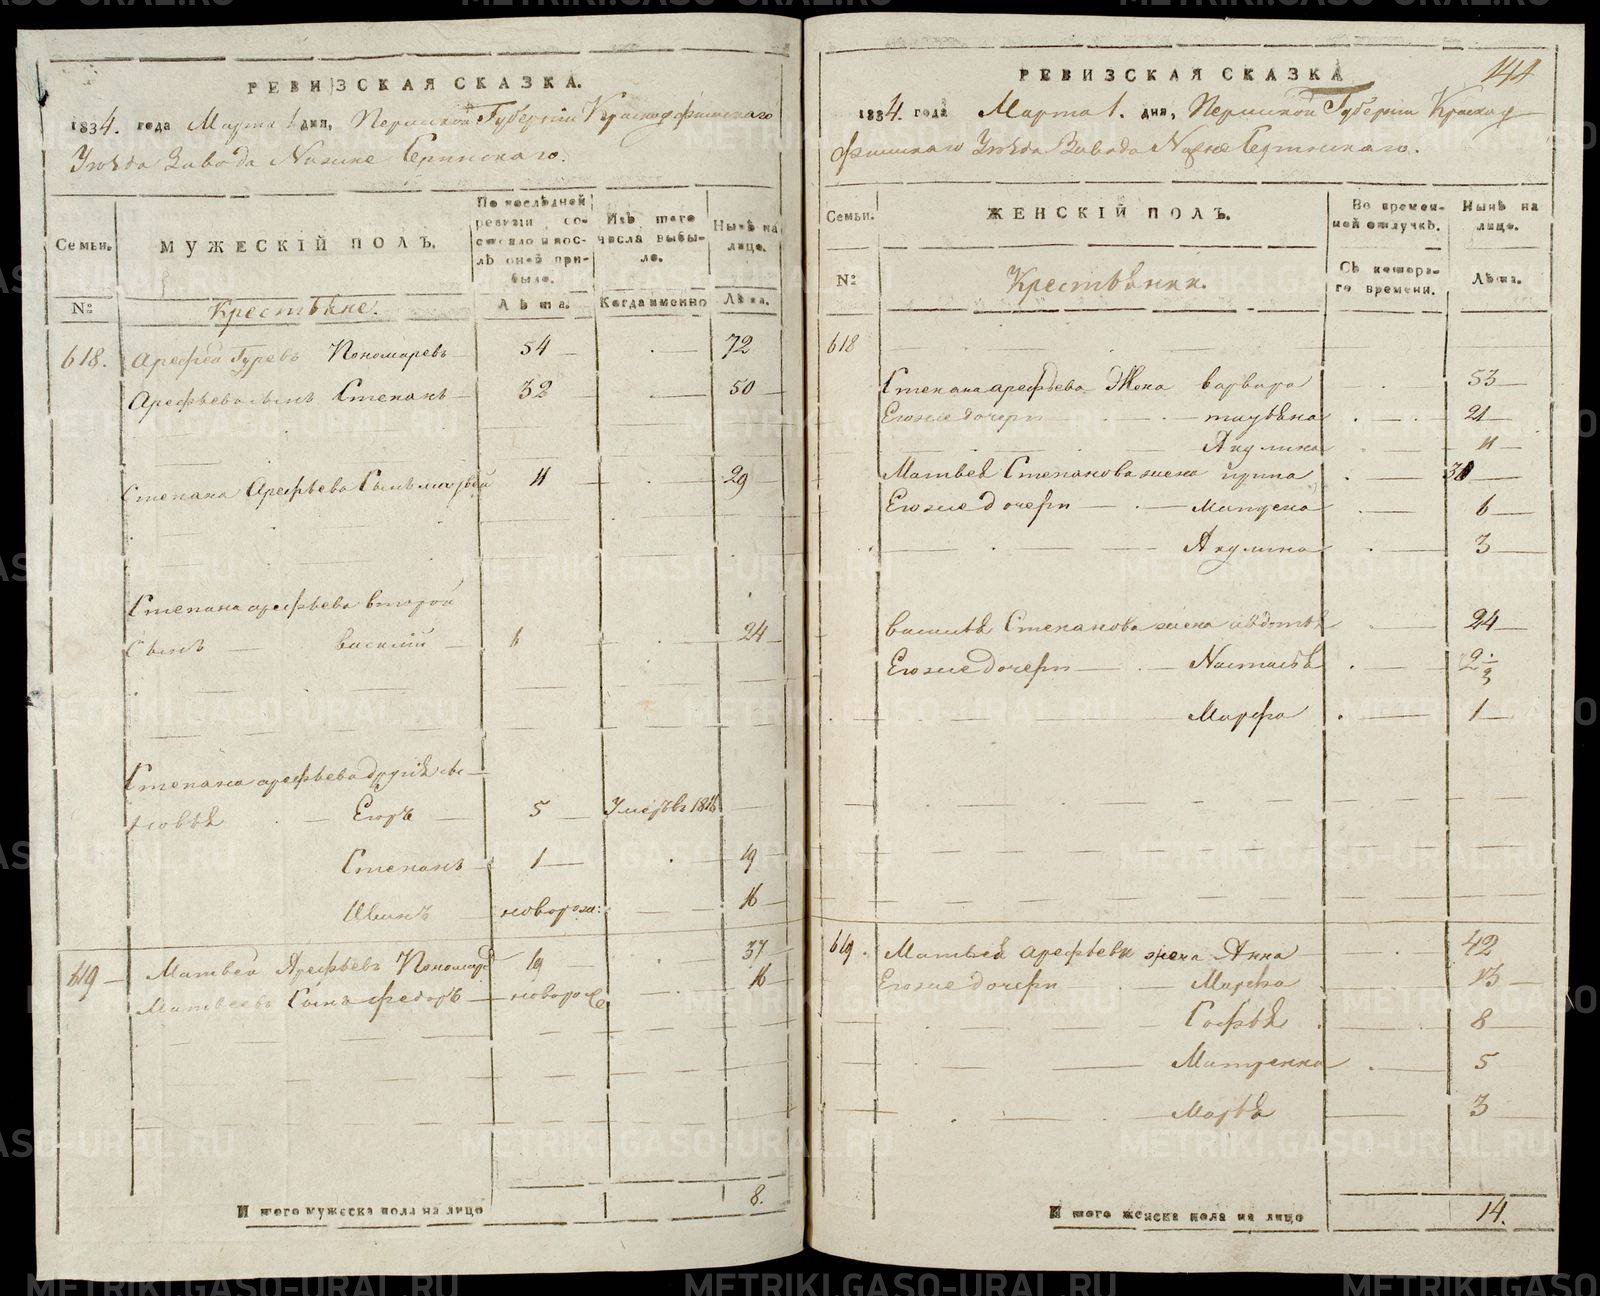 РЕВИЗСКАЯ СКАЗКА.
1834. года Марта 1 дня, Пермской Губерніи Красноуфимскаго
Уѣзда Завода Нижне Сергинскаго.
Семьи.
№
МУЖЕСКІЙ ПОЛЪ.
По последней ревизіи состояло и послѣ оной прибыло.
Изъ того числа выбыло.
Нынѣ на лице.
Крестьяне.
Лѣта.
Когда именно
Лѣта.
618. Арефей Гурьевъ Пономаревъ 54 72
Арефьева сынъ Степанъ 32 50
Степана Арефьева Сынъ матвей 11 29
Степана арефьева второй
Сынъ василий 6 24
Степана арефьева другіе сы-
новья Егоръ 5 Умеръ въ 1816
Степанъ 1 19
Иванъ новорож: 16
619 Матвей Арефьевъ Пономарев 19 37
Матвеевъ Сынъ федоръ новорож 16
Итого мужеска пола на лицо 8.
РЕВИЗСКАЯ СКАЗКА
141
1834. года Марта 1. дня, Пермской Губерніи Красноу-
фимскаго Уѣзда Завода Нижне Сергинскаго.
Семьи.
№
ЖЕНСКІЙ ПОЛЪ.
Во временной отлучкѣ.
Нынѣ на лице.
Крестьянки.
Съ котораго времени.
Лѣта.
618
Степана арефьева Жена варвара 53
Егоже дочери 21
Акулина 11
Матвея Степанова жена ирина 31
Егоже дочери Матрена 6
Акулина 3
василья Степанова жена авдотья 24
Егоже дочери Настасья 2
Марфа 1
619. Матвея арефьева жена Анна 42
Егоже дочери Марфа 13
Софья 8
Матренна 5
Марья 3
Итого женска пола на лицо 14.
METRIKI.GASO-URAL.RU